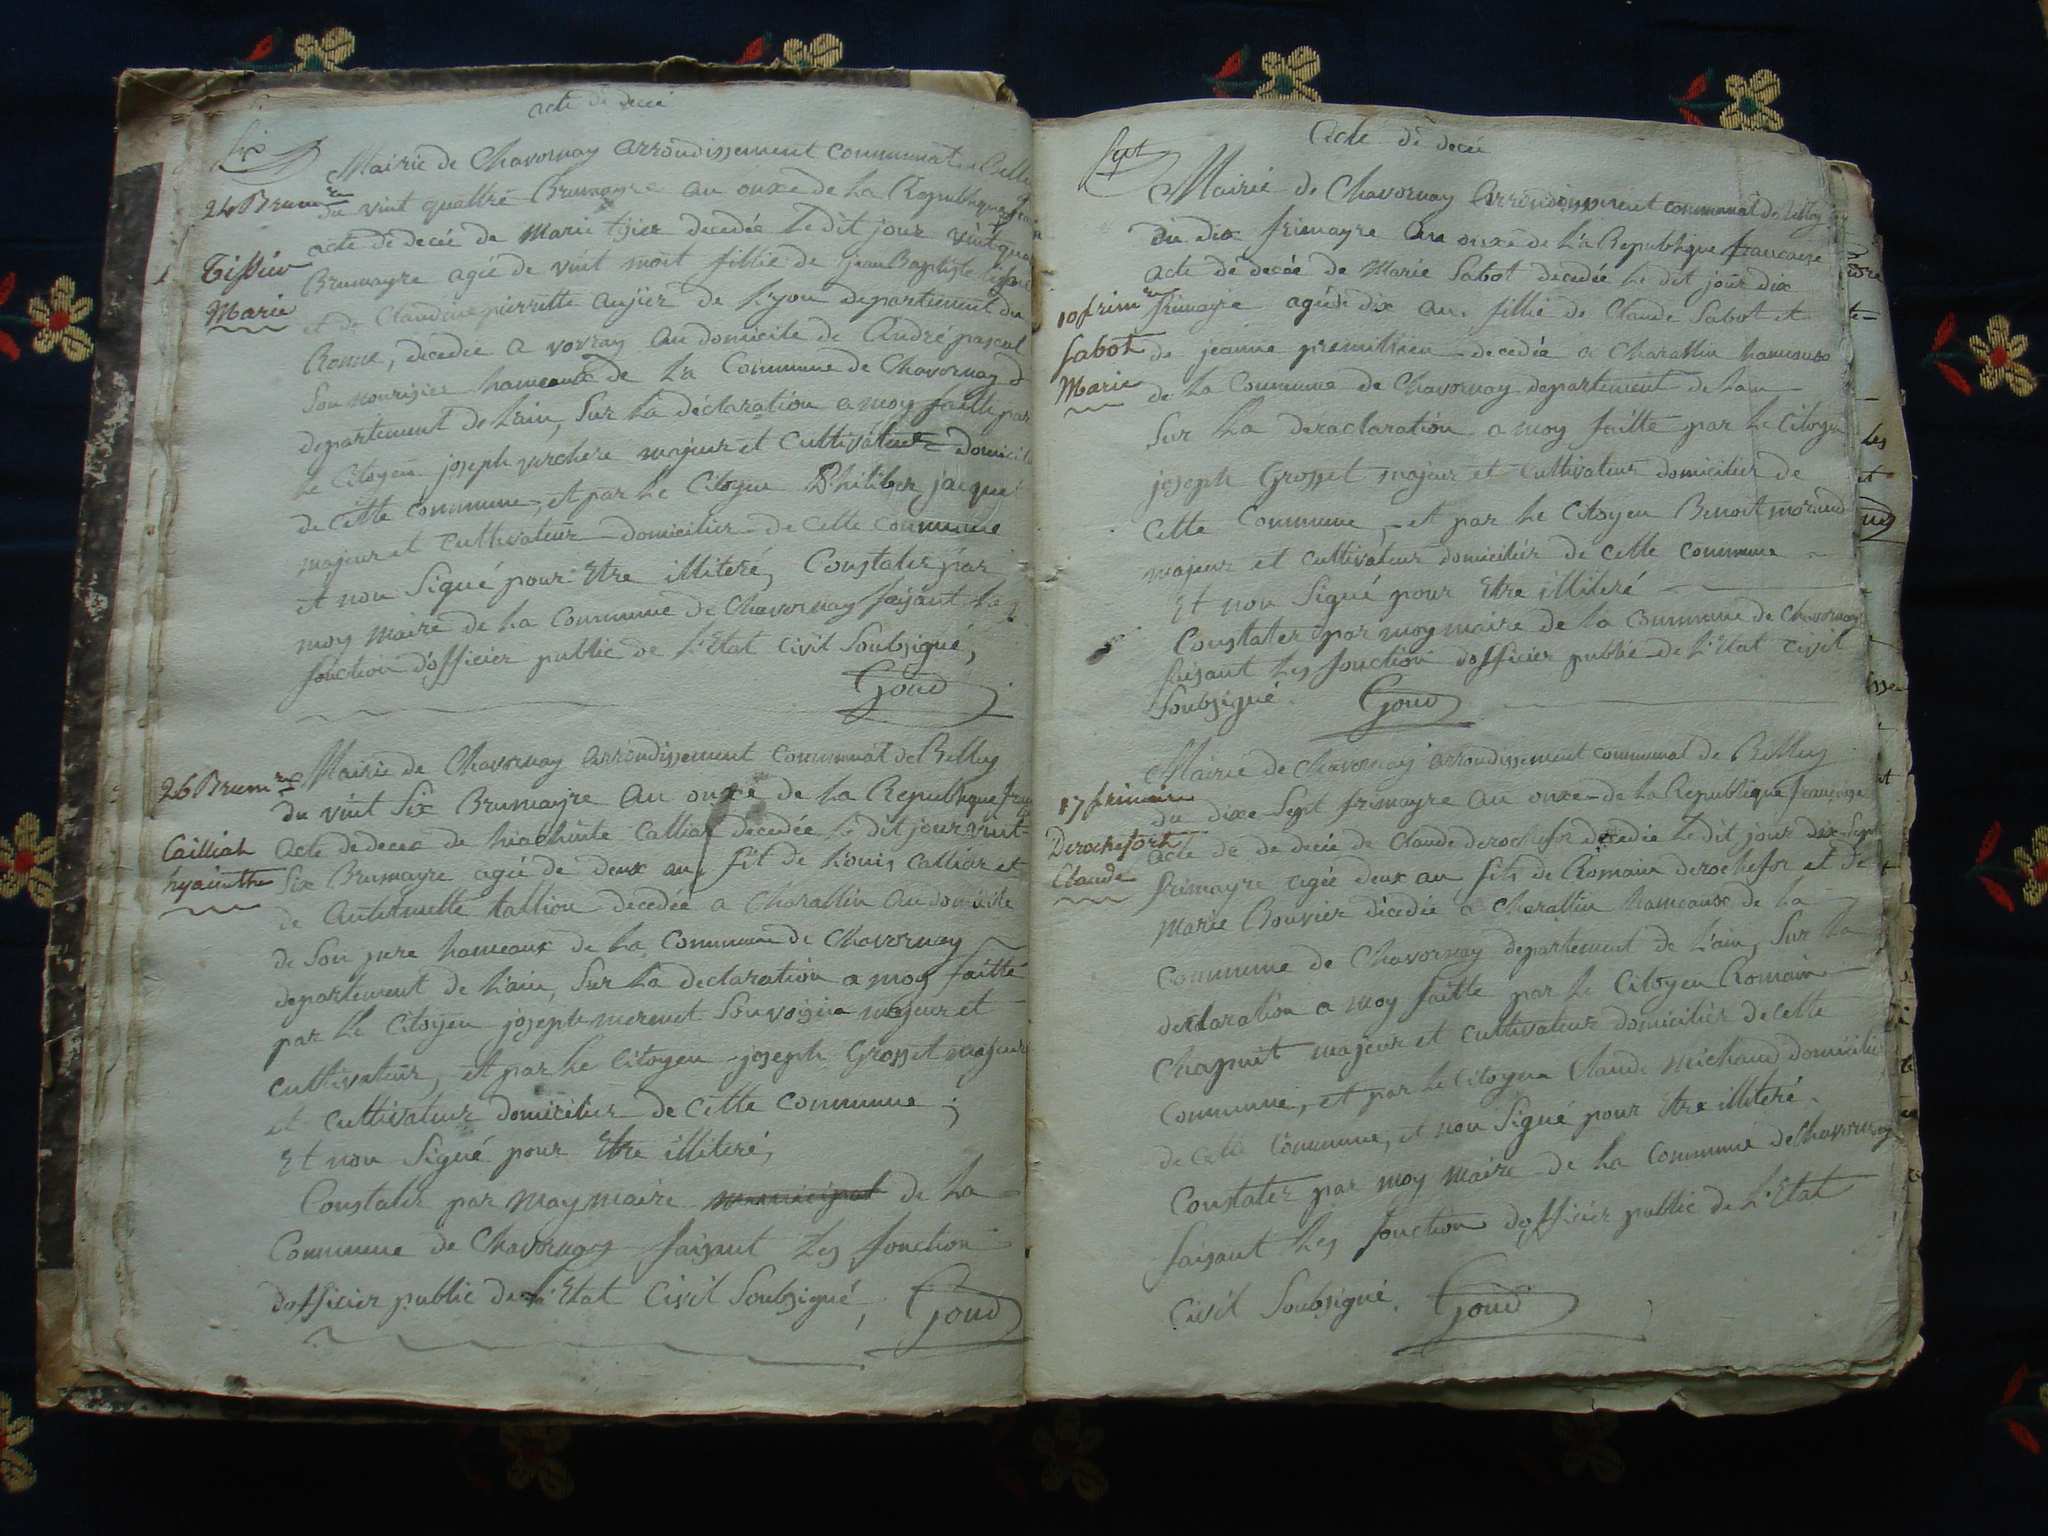 acte de decé
Six
Mairie de Chavornay arrondissement communal de Belle
24 Brumre
du vint quattre Brumayre an onxe de La Republique
acte de decée de Marie tijier decedée Le dit jour vint
Tissier
Brumayre agée de vint moit fillie de jean Baptiste
Marie
et de Claudine pierrette anjier de Lyon departement du
Ronne, decedée a vovray au domicile de André pascal
Son nourisier hameaux de La Commune de Chavornay
departement de Lain, Sur La déclaration a moy faitte par
Le Citoyen joseph perchere majeur et Cultivateur domicil
de Cette Commune, et par Le Citoyen Philiber jacque
majeur et Cultivateur domicilier de Cette Commune
et non Signé pour Etre illiteré, Constater par
moy Maire de La Commune de Chavornay faisant La
fonction dofficier public de L'Etat Civil Soubsigné,
Goud
Mairie de Chavornay arrondissement communal de Belley
26 Brumre
du vint Six Brumayre an onxe de La Republique fran
Cailliat
acte de decée de hiachinte Calliat decedée Le dit jour vint
hyacinthe
Six Brumayre agée de deux an, fil de Louis Calliat et
de antoinette tallion decedée a Charallin au domicile
de Son pere hameaux de La Commune de Chavornay
departement de Lain, Sur La declaration a moy faitte
par Le Citoyen joseph mermet Son voisin majeur et
cultivateur, et par Le Citoyen joseph Grosset majeur
et cultivateur domicilier de Cette Commune ;
Et non Signé pour Etre illiteré,
Constater par moy maire municipal de La
Commune de Chavornay faisant Les fonction
dofficier public de L'Etat Civil Soubsigné,
Goud
Sept
Acte de decée
Mairie de Chavornay arrondissement communal de Belley
du dix frimayre an onxe de La Republique francaise
acte de decée de Marie Sabot decedée Le dit jour dix
10 frimre
frimayre agée de dix an. fillie de Claude Sabot et
Sabot
de jeanne premillieu decedée a Charallin hameaux
Marie
de La Commune de Chavornay departement de Lain
Sur La deraclaration a moy faitte par Le Citoyen
joseph Grosset majeur et Cultivateur domicilier de
Cette Commune, et par Le Citoyen Benoit morand
majeur et cultivateur domicilier de cette commune
Et non Signé pour Etre illiteré
Constater par moy maire de La Commune de Chavornay
faisant Les fonction dofficier public de L'Etat Civil
Soubsigné.
Goud
Mairie de Chavornay arrondissement communal de Belley
17 frimaire
du dixe Sept frimayre an onxe de La Republique française
Derochefort
acte de de decée de Claude derochefor decedée Le dit jour dix Sept
Claude
frimayre agée deux an fils de Romain derochefor et de
Marie Bouvier décedée a Charallin hameaux de La
Commune de Chavornay departement de Lain, Sur La
declaration a moy faitte par Le Citoyen Romain
Chapuit majeur et cultivateur domicilier de cette
Commune, et par Le Citoyen Claude Michaud domicilie
de Cette Commune, et non Signé pour Etre illiteré.
Constater par moy Maire de La Commune de Chavornay
faisant Les fonction dofficier public de L'Etat
Civil Soubsigné.
Goud